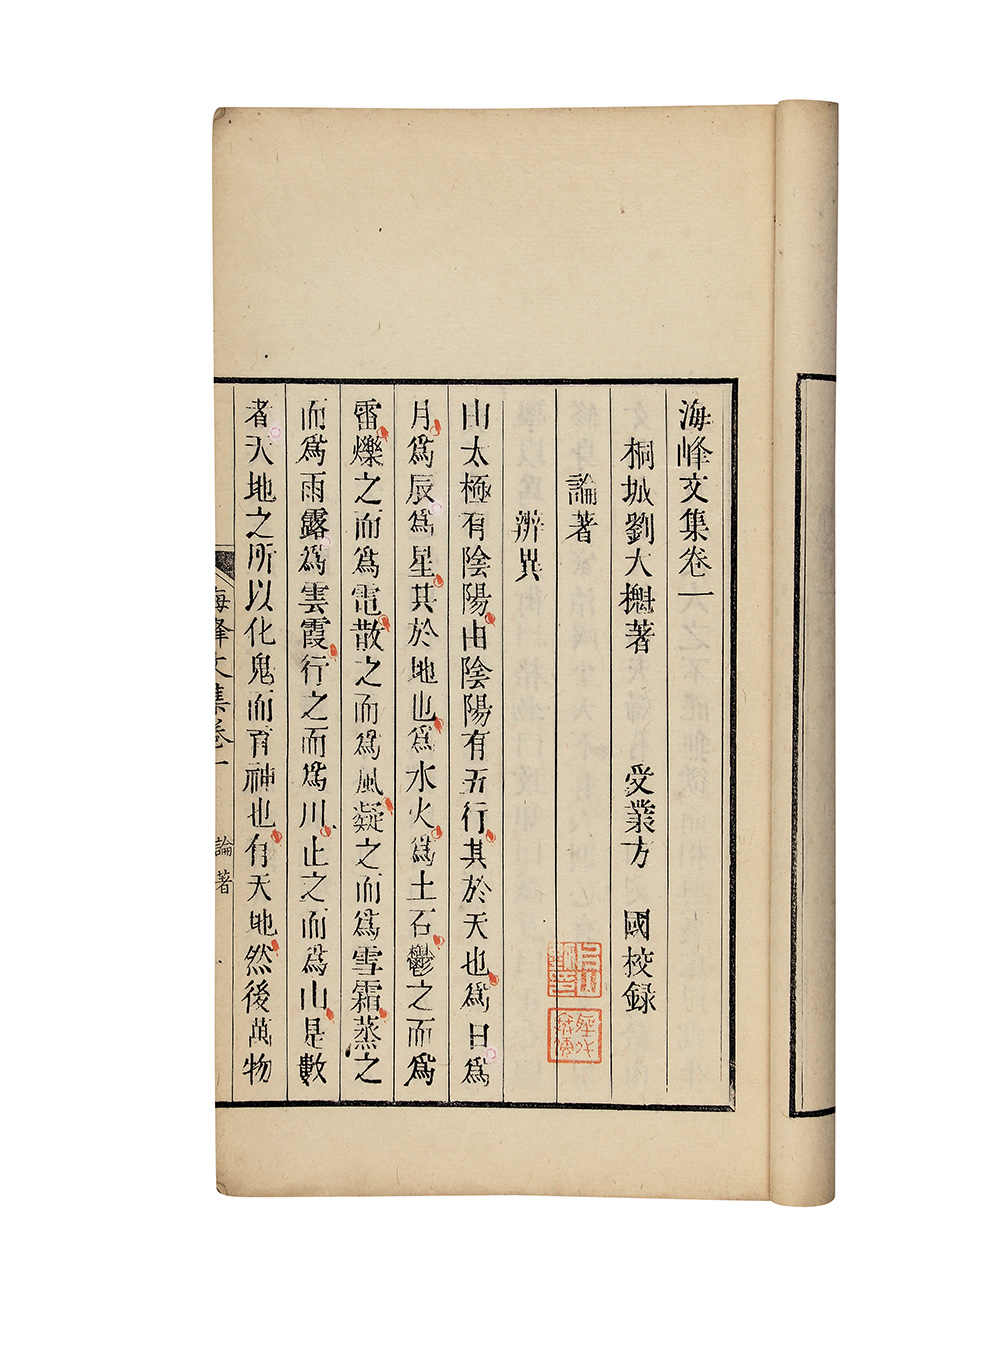 海峰文集卷一
桐城劉大櫆著　受業方　國校録
論著
辨異
由太極有陰陽由陰陽有五行其於天也爲日爲
月爲辰爲星其於地也爲水火爲土石鬱之而爲
雷爍之而爲電散之而爲風凝之而爲雪霜蒸之
而爲雨露爲雲霞行之而爲川止之而爲山是數
者天地之所以化鬼而育神也有天地然後萬物
海峰文集卷一　論著　一